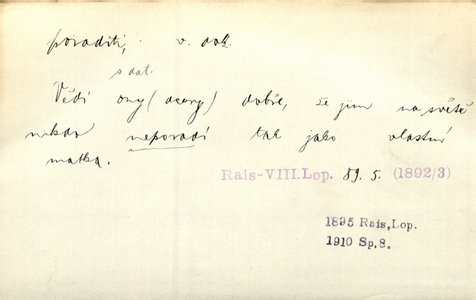 poraditi, v. dok.
s dat.
Vědí ony (dcery) dobře, že jim na světě
nikdo neporadí tak jako vlastní
matka.
Rais-VIII.Lop. 89. 5. (1892/3)
1895 Rais,Lop.
1910 Sp.8.